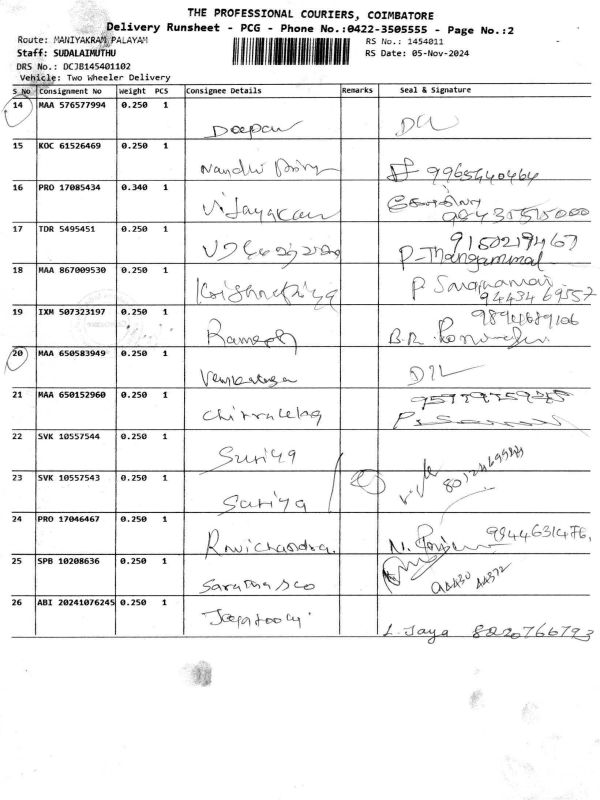 THE PROFESSIONAL COURIERS, COIMBATORE
Delivery Runsheet - PCG - Phone No.:0422-3505555 - Page No.:2
Route: MANIYAKRAM PALAYAM
RS No.: 1454011
Staff: SUDALAIMUTHU
RS Date: 05-Nov-2024
DRS No.: DCJB145401102
Vehicle: Two Wheeler Delivery
S No Consignment No Weight PCS Consignee Details Remarks Seal & Signature
14 MAA 576577994 0.250 1 Deepan
15 KOC 61526469 0.250 1 Nandhi 9965440464
16 PRO 17085434 0.340 1 Vijayakan
17 TDR 5495451 0.250 1 9150219467
P-Thangammal
18 MAA 867009530 0.250 1 Krishnapriya P 9443469557
19 IXM 507323197 0.250 1 Ramesh 9894689106
B.R.
20 MAA 650583949 0.250 1 Venkatesa
21 MAA 650152960 0.250 1 Chitralekha
22 SVK 10557544 0.250 1 Suriya
23 SVK 10557543 0.250 1 Suriya
24 PRO 17046467 0.250 1 Ravichandra. N. 9944631476.
25 SPB 10208636 0.250 1 94430 44372
26 ABI 20241076245 0.250 1 L. Jaya 8220766793